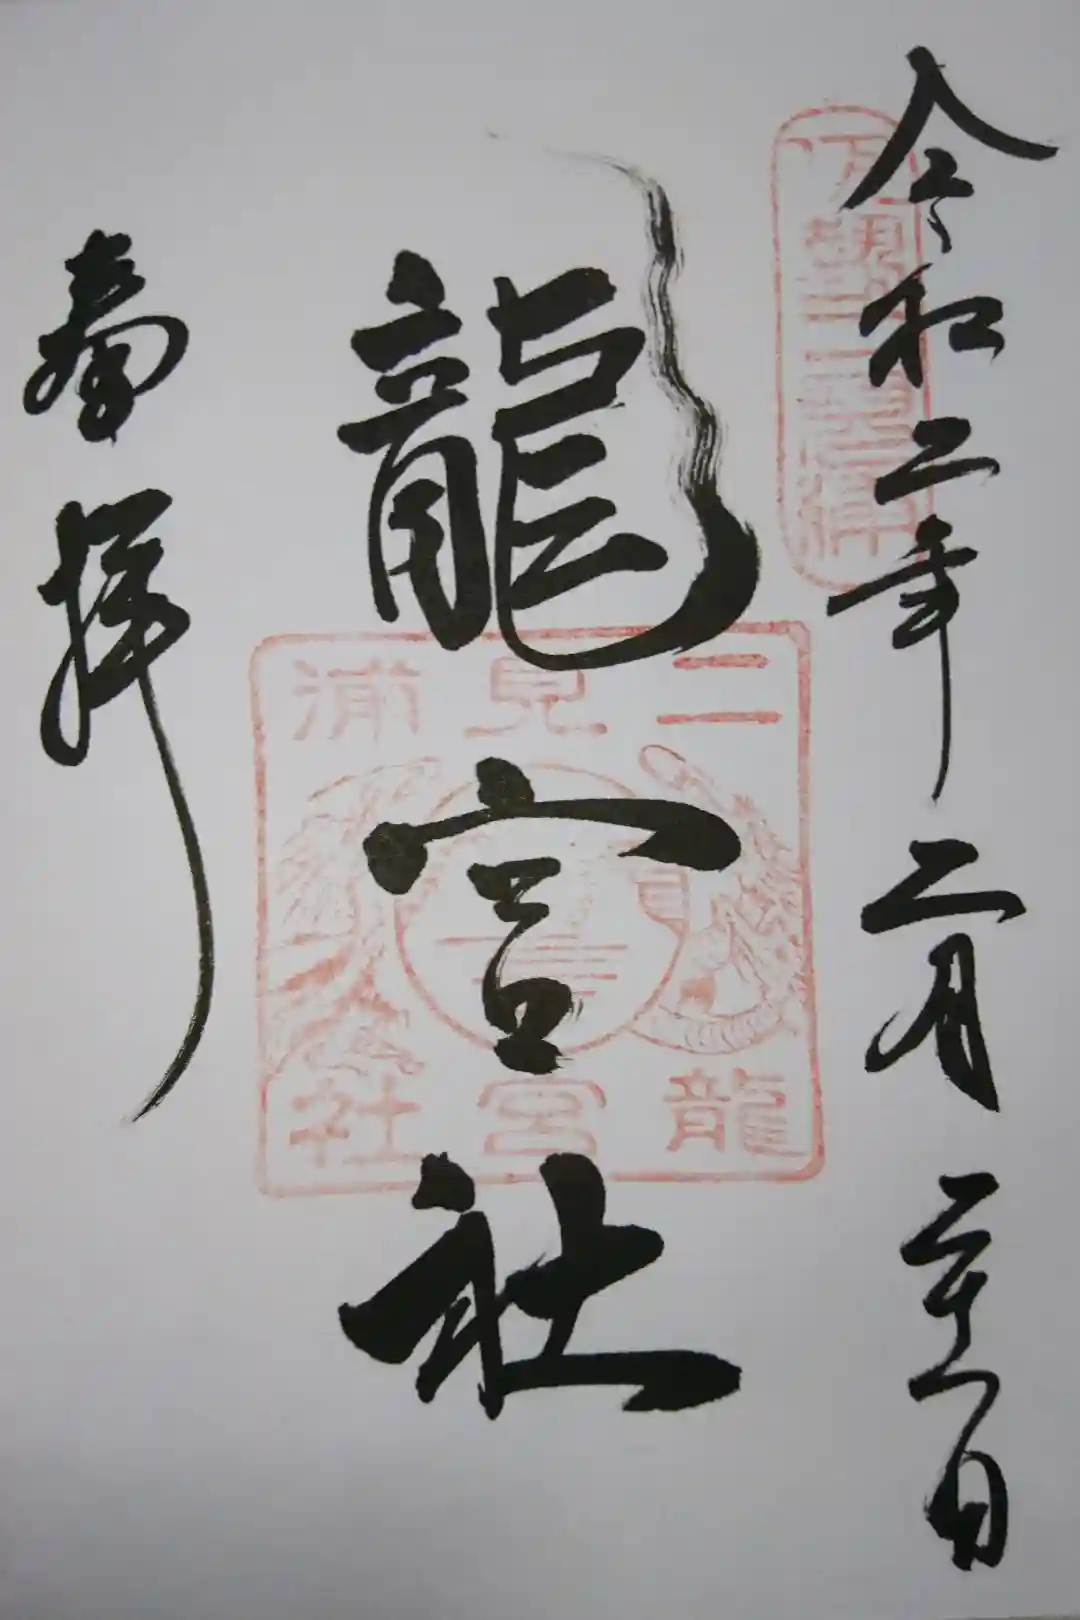 令和二年二月二十一日
龍宮社
奉拝
二見浦
龍宮社